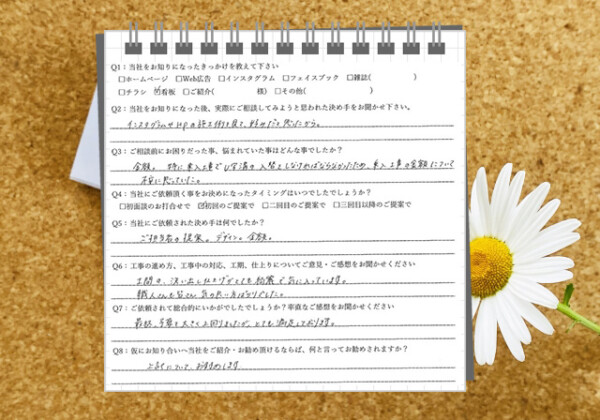 Q1：当社をお知りになったきっかけを教えて下さい
□ホームページ □Web広告 □インスタグラム □フェイスブック □雑誌( )
□チラシ ☑看板 □ご紹介( 様) □その他( )
Q2：当社をお知りになった後、実際にご相談してみようと思われた決め手をお聞かせ下さい。
インスタグラムやHPの施工例を見て、好みだと思ったから。
Q3：ご相談前にお困りだった事、悩まれていた事はどんな事でしたか？
金額。特に外構工事でU字溝の入替えしなければならなかったため、工事の金額について
不安に思っていた。
Q4：当社にご依頼頂く事をお決めになったタイミングはいつでしたでしょうか？
□初面談のお打合せで ☑初回のご提案で □二回目のご提案で □三回目以降のご提案で
Q5：当社にご依頼された決め手は何でしたか？
ご担当者の提案。デザイン。金額。
Q6：工事の進め方、工事中の対応、工期、仕上りについてご意見・ご感想をお聞かせください
土間の、洗い出し仕上げがとても綺麗で気に入っています。
職人さんも皆さん気の良い方ばかりでした。
Q7：ご依頼されて総合的にいかがでしたでしょうか？率直なご感想をお聞かせください
最初の予算を大きく上回りましたが、とても満足しております。
Q8：仮にお知り合いへ当社をご紹介・お勧め頂けるならば、何と言ってお勧めされますか？
上記について、お勧めします